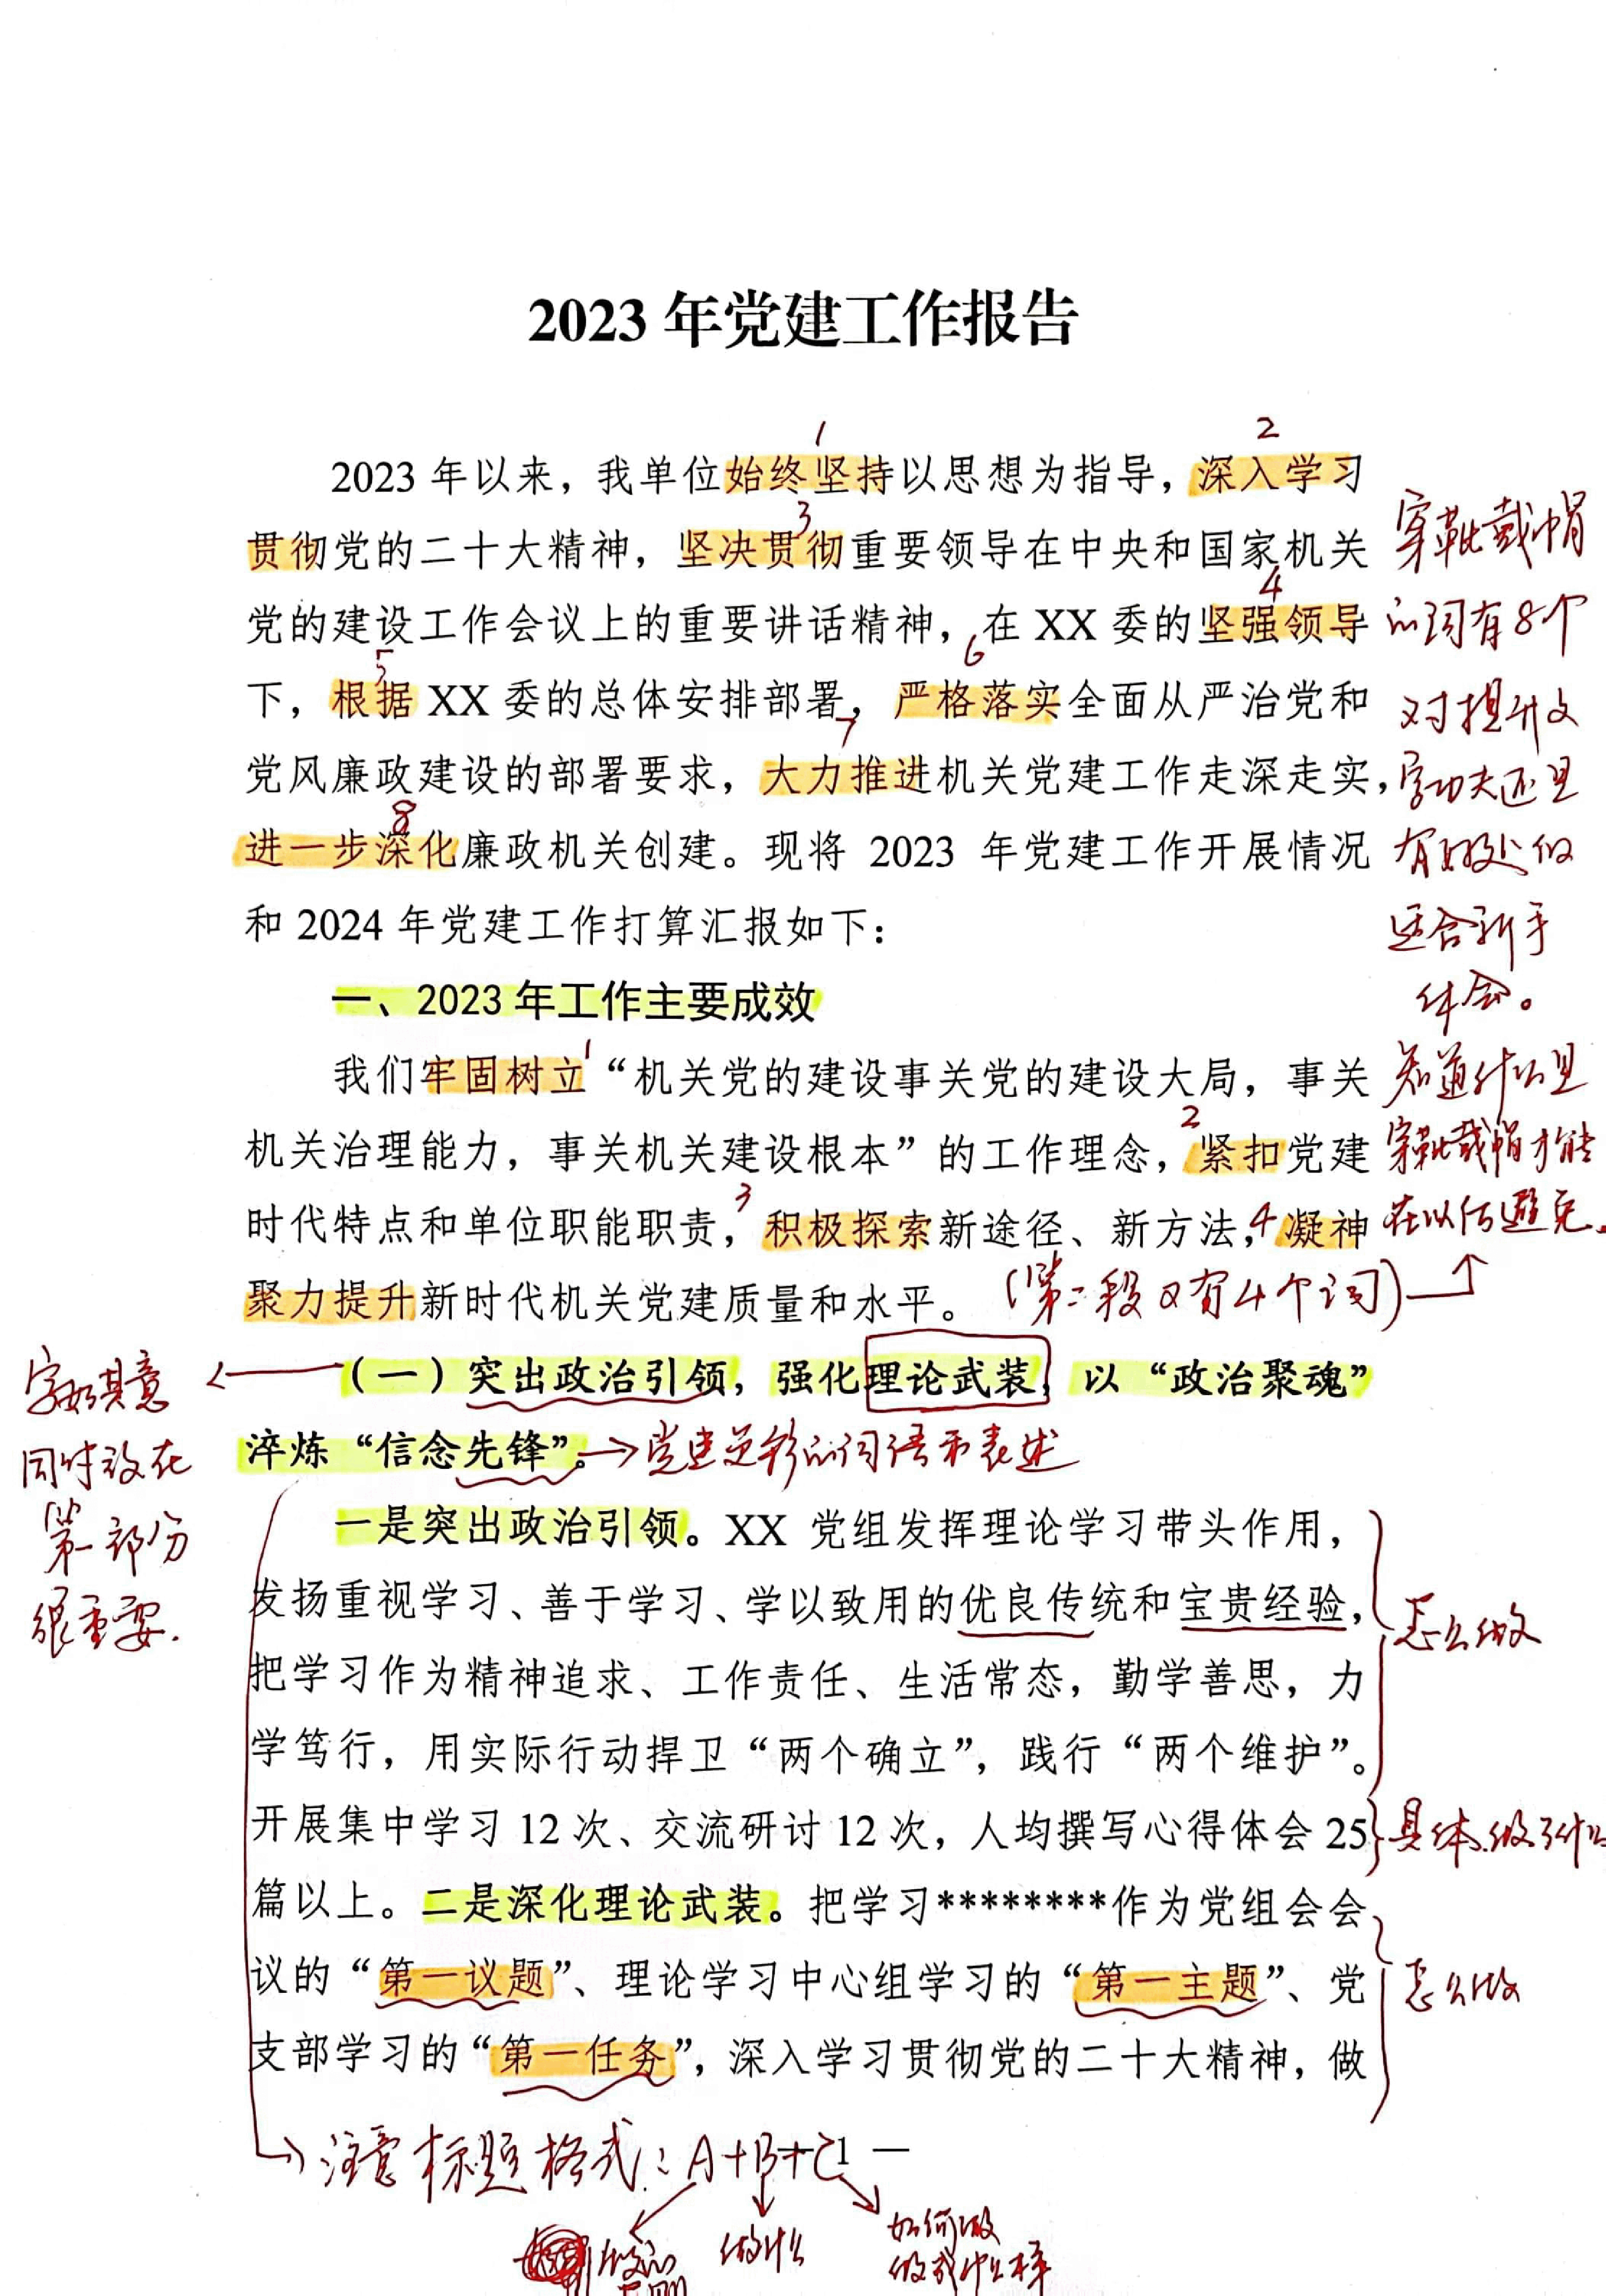 2023 年党建工作报告
1
2
2023 年以来，我单位始终坚持以思想为指导，深入学习
3
贯彻党的二十大精神，坚决贯彻重要领导在中央和国家机关
4
党的建设工作会议上的重要讲话精神，在 XX 委的坚强领导
5
6
下，根据 XX 委的总体安排部署，严格落实全面从严治党和
7
党风廉政建设的部署要求，大力推进机关党建工作走深走实，
8
进一步深化廉政机关创建。现将 2023 年党建工作开展情况
和 2024 年党建工作打算汇报如下：
穿靴戴帽
的词有8个
对提升文
字功夫还是
有好处的
适合新手
体会。
一、2023 年工作主要成效
1
我们牢固树立“机关党的建设事关党的建设大局，事关
2
机关治理能力，事关机关建设根本”的工作理念，紧扣党建
3
时代特点和单位职能职责，积极探索新途径、新方法，4 凝神
聚力提升新时代机关党建质量和水平。
知道什么是
穿靴戴帽才能
在以后避免。
（第二段又有4个词）
（一）突出政治引领，强化理论武装，以“政治聚魂”
淬炼“信念先锋”。
字如其意
同时放在
第一部份
很重要.
一是突出政治引领。XX 党组发挥理论学习带头作用，
发扬重视学习、善于学习、学以致用的优良传统和宝贵经验，
怎么做
把学习作为精神追求、工作责任、生活常态，勤学善思，力
学笃行，用实际行动捍卫“两个确立”，践行“两个维护”。
开展集中学习 12 次、交流研讨 12 次，人均撰写心得体会 25
具体做了什么
篇以上。二是深化理论武装。把学习********作为党组会会
议的“第一议题”、理论学习中心组学习的“第一主题”、党
怎么做
支部学习的“第一任务”，深入学习贯彻党的二十大精神，做
— 1 —
注意标题格式：A+B+C
做什么
如何做
做成什么样